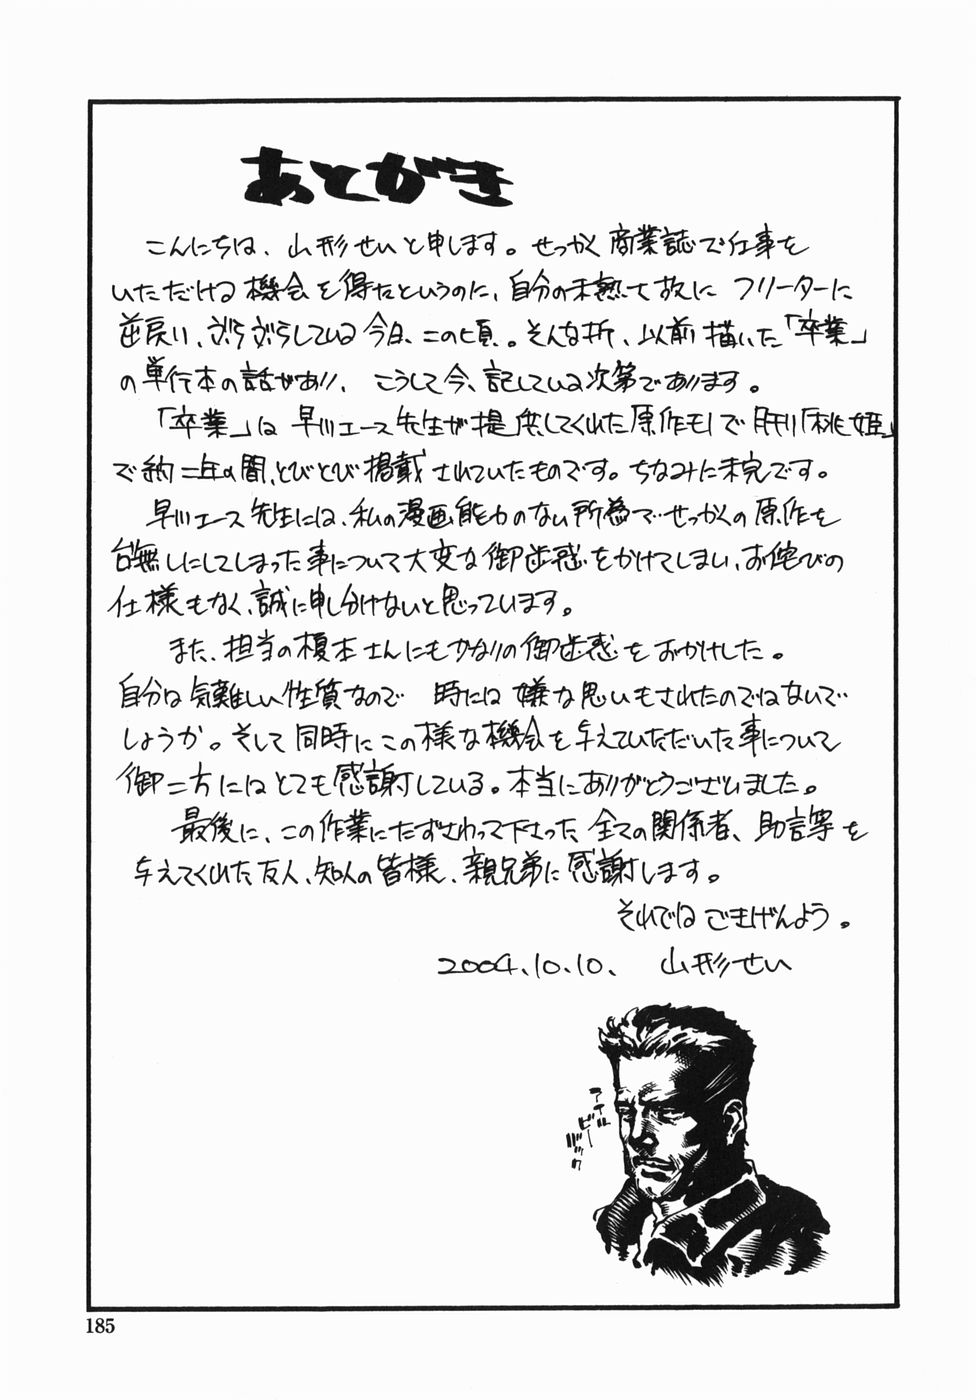 あとがき
こんにちは、山形せいと申します。せっかく商業誌で仕事を
いただける機会を得たというのに、自分の未熟さ故に フリーターに
逆戻り、ぶらぶらしている今日、この頃。そんな折、以前描いた「卒業」
の単行本の話があり、こうして今、記している次第であります。
「卒業」は 早川エース先生が提供してくれた原作モノで月刊「桃姫」
で約二年の間、とびとび掲載されていたものです。ちなみに未完です。
早川エース先生には、私の漫画能力のない所為でせっかくの原作を
台無しにしてしまった事について大変な御迷惑をかけてしまい、お侘びの
仕様もなく、誠に申し分けないと思っています。
また、担当の榎本さんにもかなりの御迷惑をおかけした。
自分は気難しい性質なので 時には嫌な思いもされたのではないで
しょうか。そして同時にこの様な機会を与えていただいた事について
御二方にはとても感謝している。本当にありがとうございました。
最後に、この作業にたずさわって下さった全ての関係者、助言等を
与えてくれた友人、知人の皆様、親兄弟に感謝します。
それではごきげんよう。
2004.10.10、 山形せい
アイル
ビー
バック
185